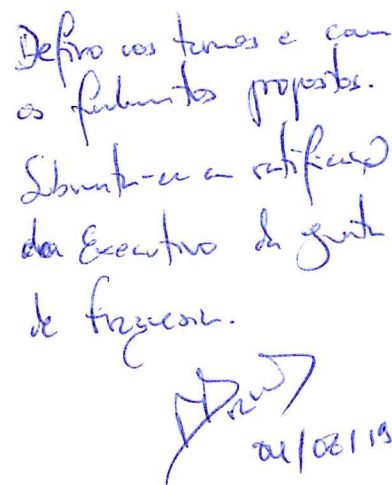 Defiro nos termos e com
os fundamentos propostos.
Submeta-se a ratificação
do Executivo da Junta
de Freguesia.